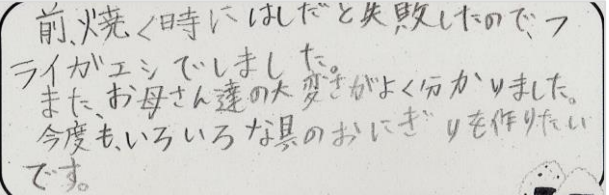 前、焼く時にはしだと失敗したので、フ
ライがエシでしました。
また、お母さん達の大変さがよく分かりました。
今度も、いろいろな具のおにぎりを作りたい
です。